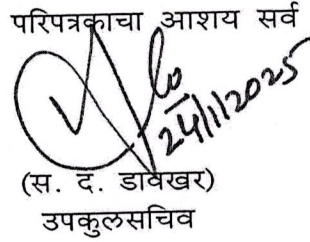 परिपत्रकाचा आशय सर्व
24/1/2025
(स. द. डावखर)
उपकुलसचिव